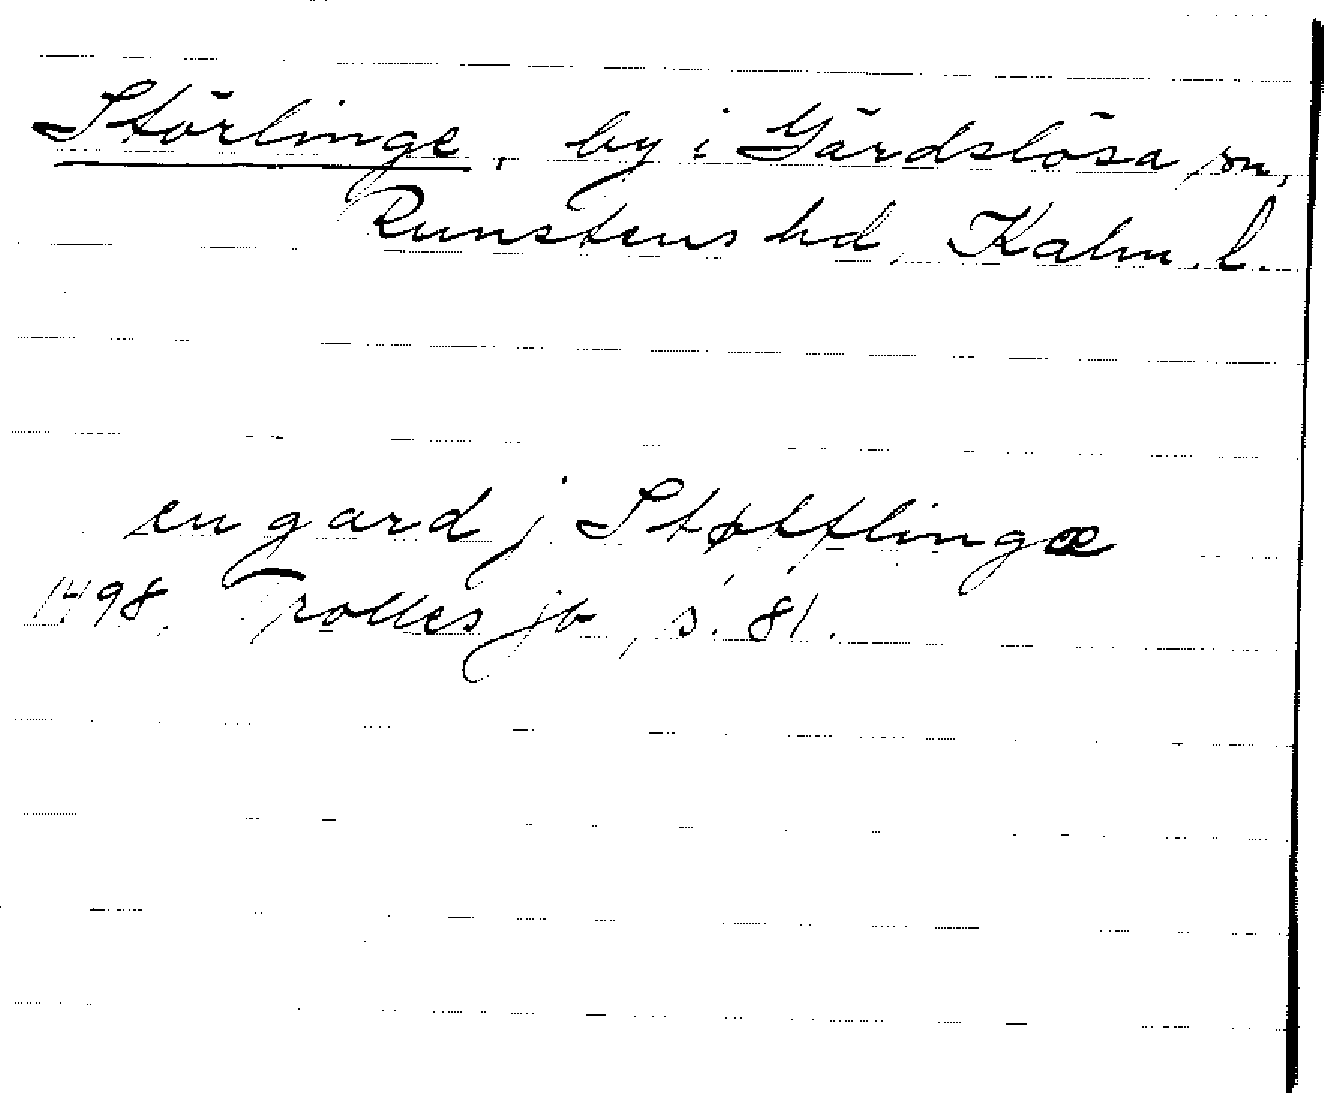 Störlinge, by i Gärdslösa sn,
Runstens hd, Kalm. l.
en gard j Støfflingæ
1498. Trolles jb, s. 81.